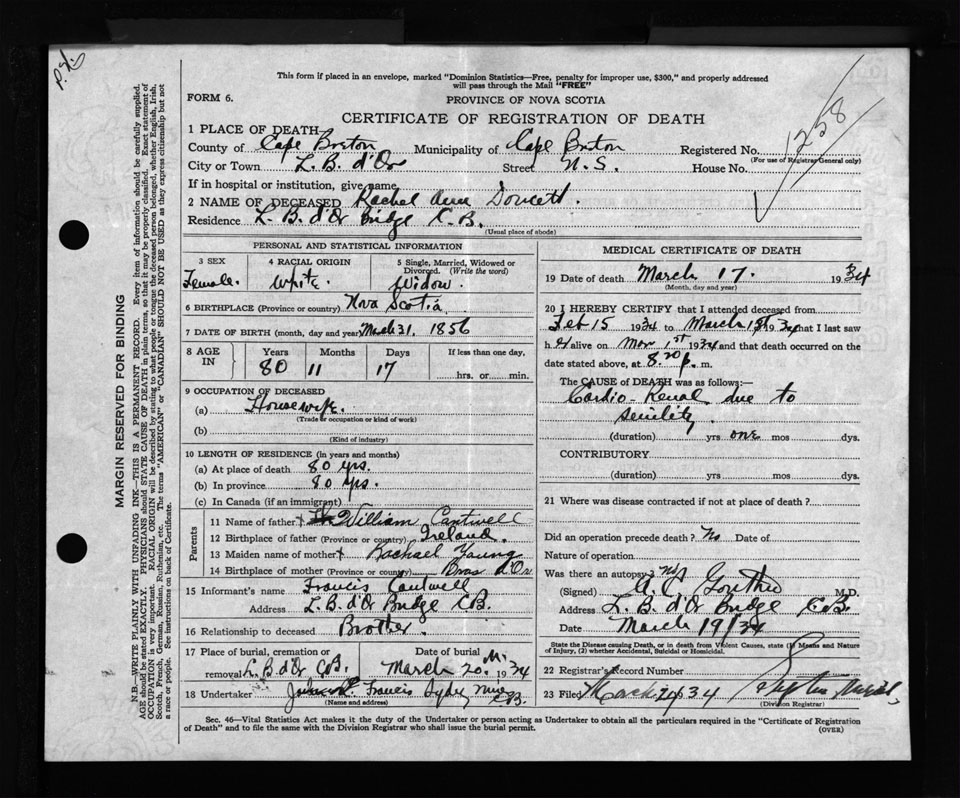 P.X.
This form if placed in an envelope, marked "Dominion Statistics—Free, penalty for improper use, $300," and properly addressed
will pass through the Mail "FREE"
FORM 6.
PROVINCE OF NOVA SCOTIA
CERTIFICATE OF REGISTRATION OF DEATH
1258
1 PLACE OF DEATH
County of Cape Breton Municipality of Cape Breton Registered No.
(For use of Registrar General only)
City or Town L. B. d'Or Street N. S. House No.
If in hospital or institution, give name
2 NAME OF DECEASED Rachel Ann Doucett.
Residence L. B. d'Or Bridge C.B.
(Usual place of abode)
PERSONAL AND STATISTICAL INFORMATION
3 SEX 4 RACIAL ORIGIN 5 Single, Married, Widowed or
Divorced. (Write the word)
Female. White. Widow.
6 BIRTHPLACE (Province or country) Nova Scotia
7 DATE OF BIRTH (month, day and year) March 31. 1856
8 AGE IN Years Months Days If less than one day,
80 11 17
hrs. or min.
9 OCCUPATION OF DECEASED
(a) Housewife.
(Trade or occupation or kind of work)
(b)
(Kind of industry)
10 LENGTH OF RESIDENCE (in years and months)
(a) At place of death 80 yrs.
(b) In province 80 yrs.
(c) In Canada (if an immigrant)
Parents
11 Name of father William Cantwell
12 Birthplace of father (Province or country) Ireland.
13 Maiden name of mother Rachael Young
14 Birthplace of mother (Province or country) Bras d'Or
15 Informant's name Francis Cantwell
Address L. B. d'Or Bridge C.B.
16 Relationship to deceased Brother.
17 Place of burial, cremation or Date of burial
removal L. B. d'Or C.B. March 20 1934
18 Undertaker Francis Sydney Mines
(Name and address) C.B.
MEDICAL CERTIFICATE OF DEATH
19 Date of death March 17. 1934
(Month, day and year)
20 I HEREBY CERTIFY that I attended deceased from
Feb 15 1934 to March 1st 1934 that I last saw
h er alive on Mar 1st 1934 and that death occurred on the
date stated above, at 8.20 p. m.
The CAUSE of DEATH was as follows:—
Cardio-Renal due to
senility.
(duration) yrs one mos dys.
CONTRIBUTORY
(duration) yrs mos dys.
21 Where was disease contracted if not at place of death?
Did an operation precede death? No Date of
Nature of operation
Was there an autopsy? No
(Signed) M.D.
Address L. B. d'Or Bridge C.B.
Date March 19/34
State the Disease causing Death, or in death from Violent Causes, state (1) Means and Nature
of Injury, (2) whether Accidental, Suicidal or Homicidal.
22 Registrar's Record Number
23 Filed March 34
(Division Registrar)
Sec. 46—Vital Statistics Act makes it the duty of the Undertaker or person acting as Undertaker to obtain all the particulars required in the "Certificate of Registration
of Death" and to file the same with the Division Registrar who shall issue the burial permit.
(OVER)
MARGIN RESERVED FOR BINDING
N.B.—WRITE PLAINLY WITH UNFADING INK—THIS IS A PERMANENT RECORD. Every item of information should be carefully supplied.
AGE should be stated EXACTLY. PHYSICIANS should STATE CAUSE OF DEATH in plain terms, so that it may be properly classified. Exact statement of
OCCUPATION is very important. RACIAL ORIGIN will be described by stating to what people or tongue the deceased person belonged, whether English, Irish,
Scotch, French, German, Russian, Ruthenian, etc. The terms "AMERICAN" or "CANADIAN" SHOULD NOT BE USED as they express citizenship but not
a race or people. See instructions on back of Certificate.